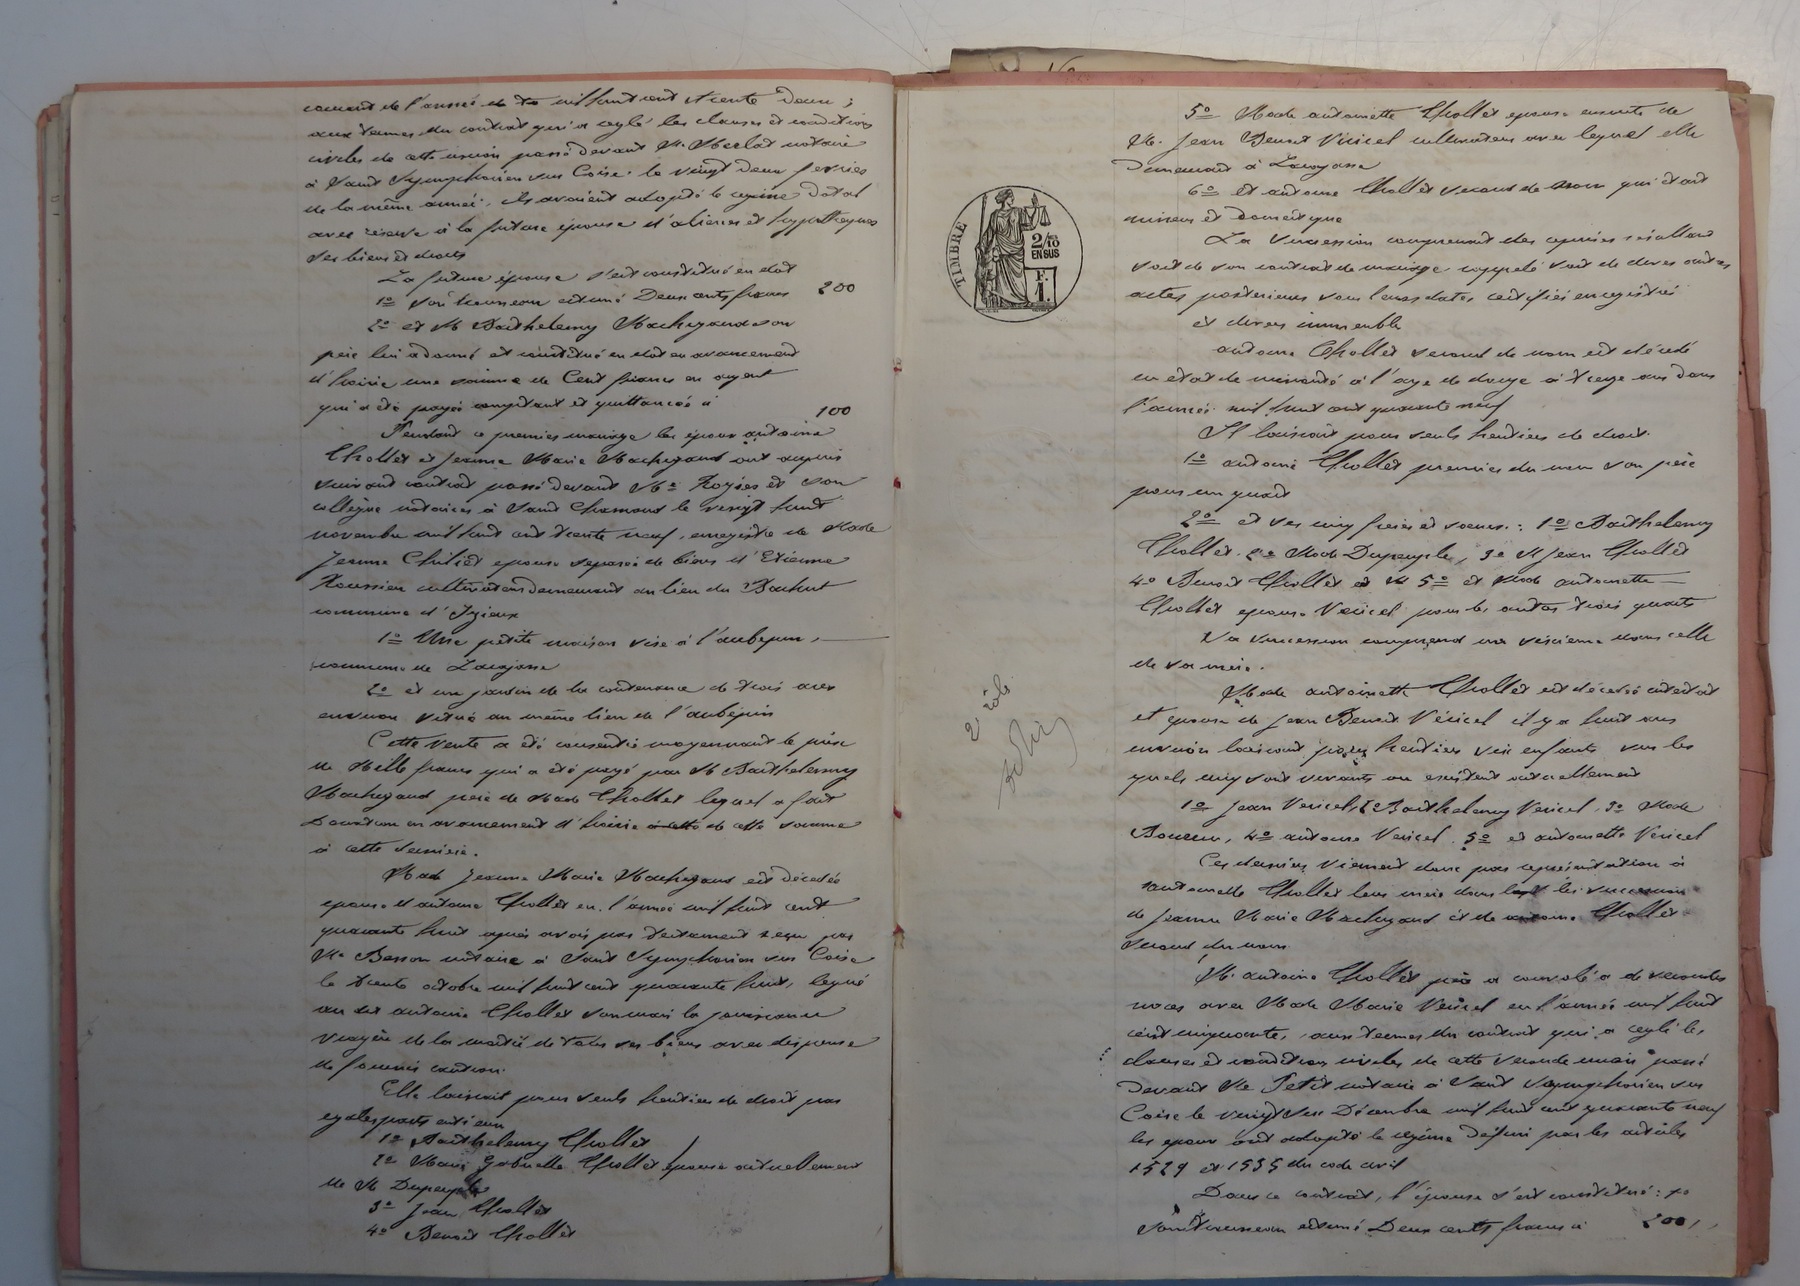 courant de l'année de mil huit cent trente deux ;
aux termes du contrat qui a réglé les clauses et conditions
civiles de cette union passé devant Me notaire
à Saint Symphorien sur Coise le vingt deux février
de la même année, ils avaient adopté le régime dotal
avec réserve à la future épouse d'aliéner et hypothéquer
ses biens et droits
La future épouse s'est constitué en dot
1o Son trousseau estimé Deux cents francs 200
2o et M Barthelemy Machizaud son
père lui a donné et constitué en dot en avancement
d'hoirie une somme de Cent francs en argent
qui a été payée comptant et quittancée ci 100
Pendant ce premier mariage les époux antoine
Chollet et Jeanne Marie Machizaud ont acquis
suivant contrat passé devant Me et son
collègue notaires à Saint Chamond le vingt huit
novembre mil huit cent trente neuf, enregistré de Made
Jeanne épouse séparée de biens d'Etienne
Roussier cultivateur demeurant au lieu du
commune d'Izieux
1o Une petite maison sise à l'aubepin,
commune de Larajasse
2o et un jardin de la contenance de trois ares
environ situé au même lieu de l'aubépin
Cette vente a été consentie moyennant le prix
de Mille francs qui a été payé par M Barthelemy
Machizaud père de Made Chollet lequel a fait
Donation en avancement d'hoirie à cette de cette somme
à cette dernière.
Made Jeanne Marie Machizaud est décédée
épouse d'antoine Chollet en l'année mil huit cent
quarante huit après avoir par testament reçu par
Me Besson notaire à Saint Symphorien sur Coise
le trente octobre mil huit cent quarante huit, légué
au dit antoine Chollet son mari la jouissance
viagère de la moitié de tous ses biens avec dispense
de fournir caution.
Elle laissait pour seuls héritiers de droit par
égales parts entr'eux
1o Barthelemy Chollet
2o Marie Chollet épouse actuellement
de M Dupeuple
3o Jean Chollet
4o Benoit Chollet
TIMBRE
2/10 EN SUS
F. 1.
2e rôle
5o Made antoinette Chollet épouse ensuite de
M. Jean Benoit Véricel cultivateur avec lequel elle
Demeurait à Larajasse
6o et antoine Chollet second de nom qui était
mineur et domestique
La succession comprenait des reprises résultant
soit de son contrat de mariage rappelé soit de divers autres
actes postérieurs sous leurs dates certifiés enregistrés
et divers immeuble
antoine Chollet second de nom est décédé
en état de minorité à l'age de douze à treize ans dans
l'année mil huit cent quarante neuf
Il laissait pour seuls héritiers de droit.
1o antoine Chollet premier du nom son père
pour un quart
2o et ses cinq frères et soeurs : 1o Barthelemy
Chollet. 2o Made Dupeuple, 3o M Jean Chollet
4o Benoit Chollet et M 5o et Made antoinette
Chollet épouse Véricel pour les autres trois quarts
Sa succession comprend un sixième dans celle
de sa mère.
Made antoinette Chollet est décédée intestat
et épouse de Jean Benoit Véricel il y a huit ans
environ laissant pour héritiers six enfants sur les
quels cinq sont vivants ou existent actuellement
1o Jean Véricel, 2o Barthelemy Véricel, 3o Made
4o antoine Véricel. 5o et antoinette Véricel
Ces derniers viennent donc par représentation à
antoinette Chollet leur mère dans les successions
de Jeanne Marie Machizaud et de antoine Chollet
second du nom
M. antoine Chollet père a convolé à de secondes
noces avec Made Marie Véricel en l'année mil huit
cent cinquante, aux termes du contrat qui a réglé les
clauses et condition civiles de cette seconde union passé
devant Me Petit notaire à Saint Symphorien sur
Coise le vingt six Décembre mil huit cent quarante neuf
les époux ont adopté le régime défini par les articles
1529 et 1535 du code civil
Dans ce contrat, l'épouse s'est constitué : 1o
Son trousseau estimé Deux cents francs ci 200